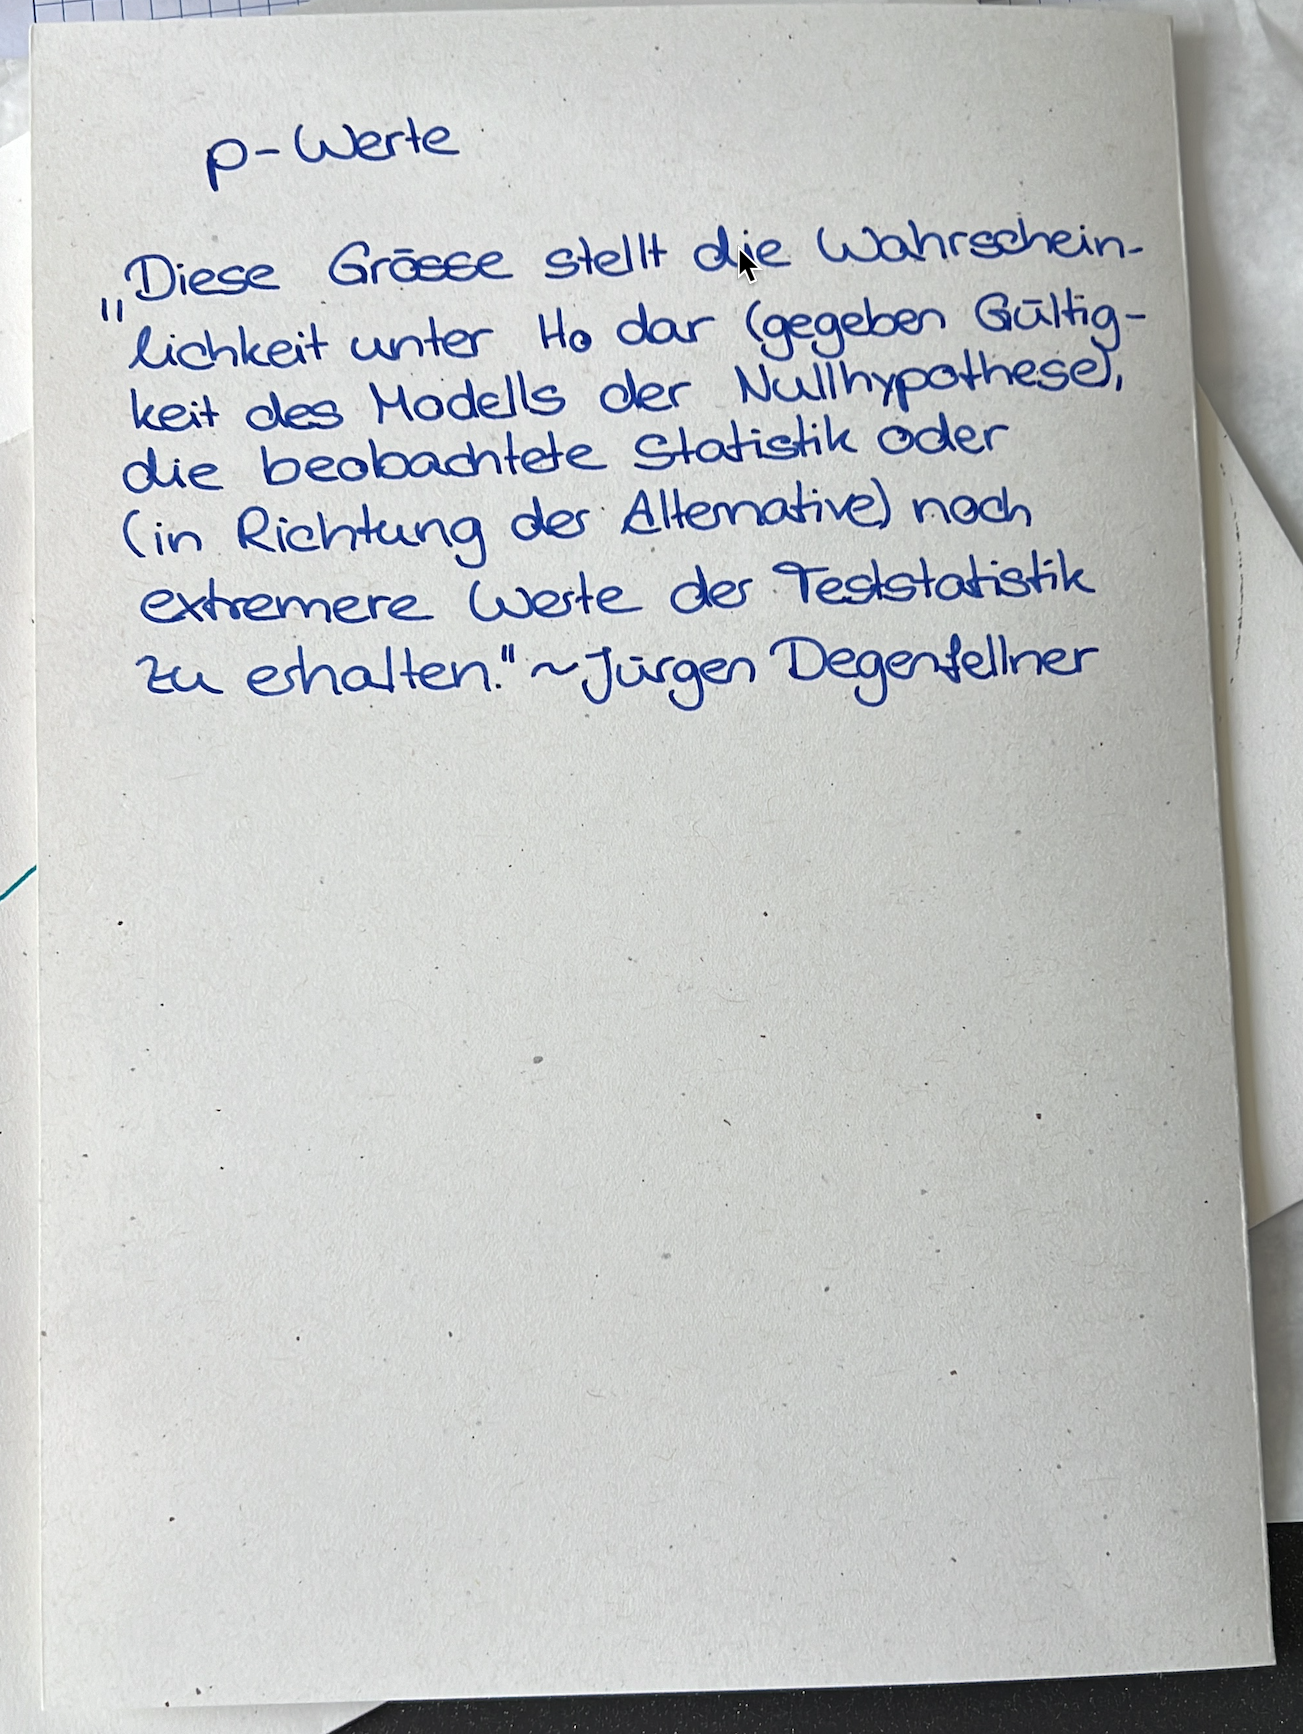 p-Werte
„Diese Grösse stellt die Wahrschein-
lichkeit unter H₀ dar (gegeben Gültig-
keit des Modells der Nullhypothese),
die beobachtete Statistik oder
(in Richtung der Alternative) noch
extremere Werte der Teststatistik
zu erhalten." ~Jürgen Degenfellner